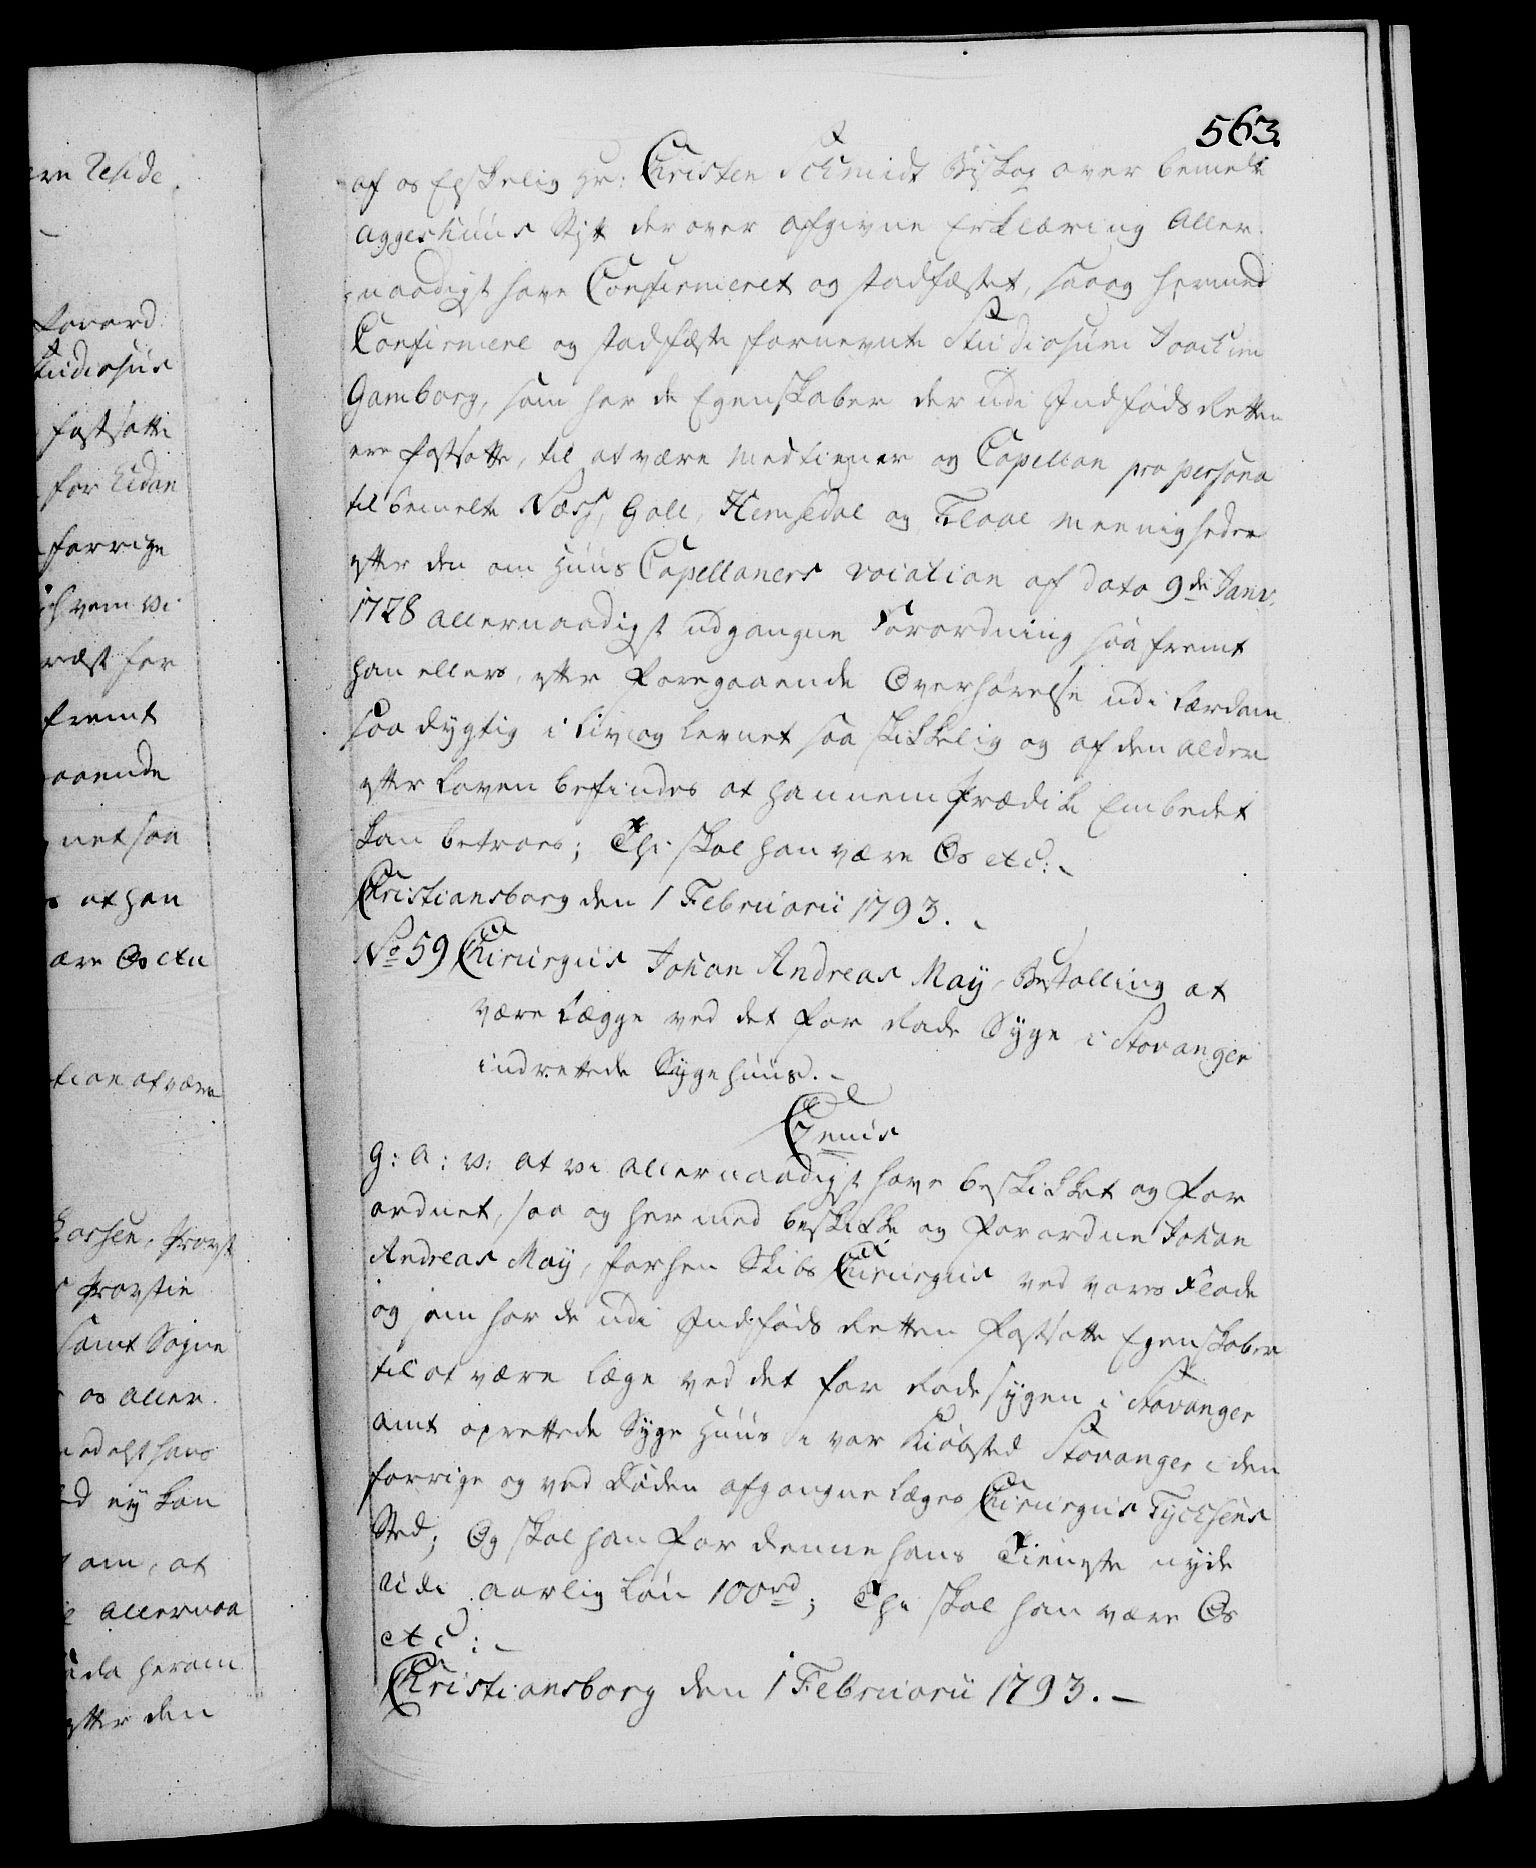 563.
af os Elskelig Hr: Christen Schmidt Biskop over bemelte
Aggershuus Stift derover afgivne Erklæring Aller-
naadigst have Confirmeret og stadfæstet, saa og hermed
Confirmere og stadfæste fornevnte Studiosum Joachim
Gamborg, som har de Egenskaber der udi Indføds Retten
ere fastsatte, til at være Medtiener og Capellan pro persona
til bemelte Næss, Goll, Hemsedal og Flaae Meenigheder
efter den om Huus Capellaners vocation af dato 9de Janv.
1728 allernaadigst udgangne Forordning saa fremt
han ellers, efter foregaaende Overhørelse udi Lærdom
saa dygtig i Liv og Levnet saa skikkelig og af den Alder
efter Loven befindes at hannem Prædike Embedet
kan betroes; Thi skal han være Os etc:
Christiansborg den 1 Februarii 1793.
No 59 Chirurgus Johan Andreas May, Bestalling at
være Lægge ved det for Rade Syge i Stavanger
indrettede Sygehuus.
C7enis
G: A: V: at vi allernaadigst have beskikket og for
ordnet, saa og hermed beskikke og forordne Johan
Andreas May, forhen Skibs Chirurgus ved vores Flode
og som har de udi Indføds Retten fastsatte Egenskaber
til at være Læge ved det for Radesygen i Stavanger
amt oprettede Syge Huus i vor Kiøbsted Stavanger i den
forrige og ved Døden afgangne Læges Chirurgus Tychsens
Sted; Og skal han for denne hans Tieneste nyde
udi aarlig Løn 100rd; Thi skal han være Os
etc:
Christiansborg den 1 Februarii 1793.